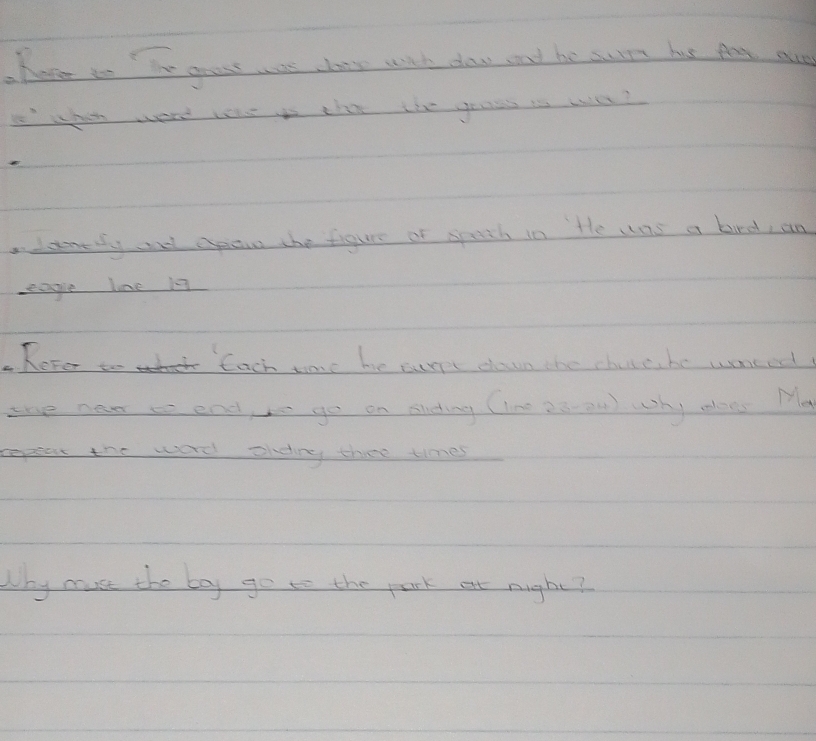 Refer to "The grass was damp with dew and he swam his
it" when word tells us that the grass is wet?
Identify and explain the figure of speech in 'He was a bird, an
eagle line 19
Refer to 'Each time he swept down the chute, he wanted
never to end, to go on sliding (line 23-24) why does
repeat the word sliding three times
Why must the boy go to the park at night?